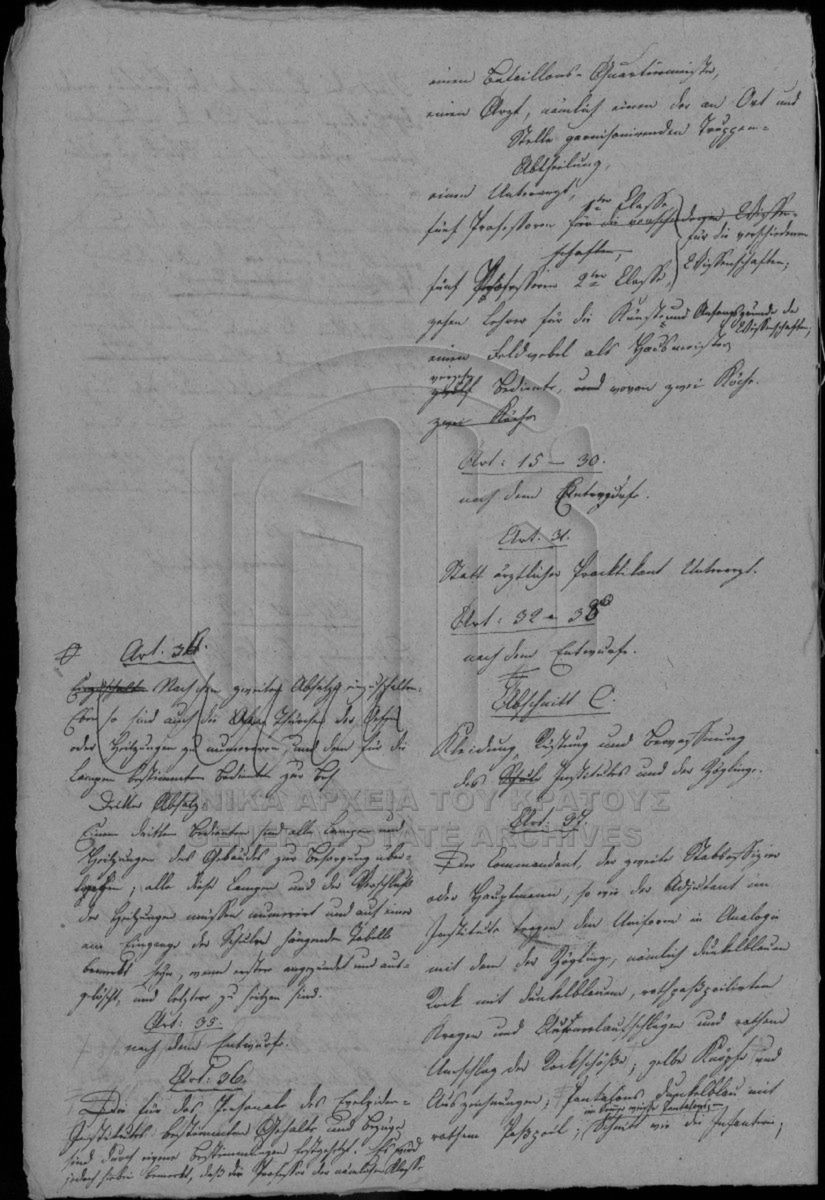 einen Bataillons-Quartiermeister,
einen Arzt, nämlich einen der an Ort und
Stelle garnisonirenden Truppen-
Abtheilung,
einen Unterarzt,
fünf Professoren 1ter Classe, für die verschiedenen Wissen-
schaften,
für die verschiedenen
Wissenschaften;
fünf Professoren 2ter Classe,
zehen Lehrer für die Künste und Anfangsgründe der
Wissenschaften,
einen Feldwebel als Hausmeister
zwölf Bediente, und wovon zwei Köche.
zwei Köche
Art: 15 — 30.
nach dem Entwurfe.
Art. 31.
Statt ärztlicher Practikant Unterarzt.
Art: 32 - 38
nach dem Entwurfe.
Abschnitt C.
Kleidung, Rüstung und Bewaffnung
des Instituts und der Zöglinge.
Art: 37.
Der Commandant, der zweite Stabsoffizier
oder Hauptmann, so wie der Adjutant im
Institute tragen den Uniform in Analogie
mit dem der Zöglinge, nämlich dunkelblauen
Rock mit dunkelblauem, rothpaßpoilirten
Kragen und Aufschlägen und rothem
Umschlag der Rockschöße; gelbe Knöpfe und
Auszeichnungen; Pantalons dunkelblau mit
im Sommer weiße Pantalons,
rothem Paßpoil; Schnitt wie die Infanterie;
Art. 34.
Nach dem zweiten Absatze einzuschalten.
Eben so sind auch die Thürchen der Oefen
oder Heitzungen zu numeriren, und dem für die
Lampen bestimmten Bedienten zur Bes
Dritter Absatz.
Einem dritten Bedienten sind alle Lampen und
Heitzungen des Gebäudes zur Besorgung über-
geben; alle diese Lampen und der Verschluß
der Heitzungen müssen numerirt und auf einer
am Eingange der Schule hängenden Tabelle
bemerkt seyn, wann erstere angezündet und aus-
gelöscht, und letztere zu heitzen sind.
Art: 35.
nach dem Entwurfe.
Art: 36.
Die für das Personale des Evelpiden-
Instituts bestimmten Gehalte und Bezüge
sind durch eigene Bestimmungen festgesetzt. Es wird
jedoch hiebei bemerkt, daß die Professoren der nämlichen Klasse
ΓΕΝΙΚΑ ΑΡΧΕΙΑ ΤΟΥ ΚΡΑΤΟΥΣ
GENERAL STATE ARCHIVES